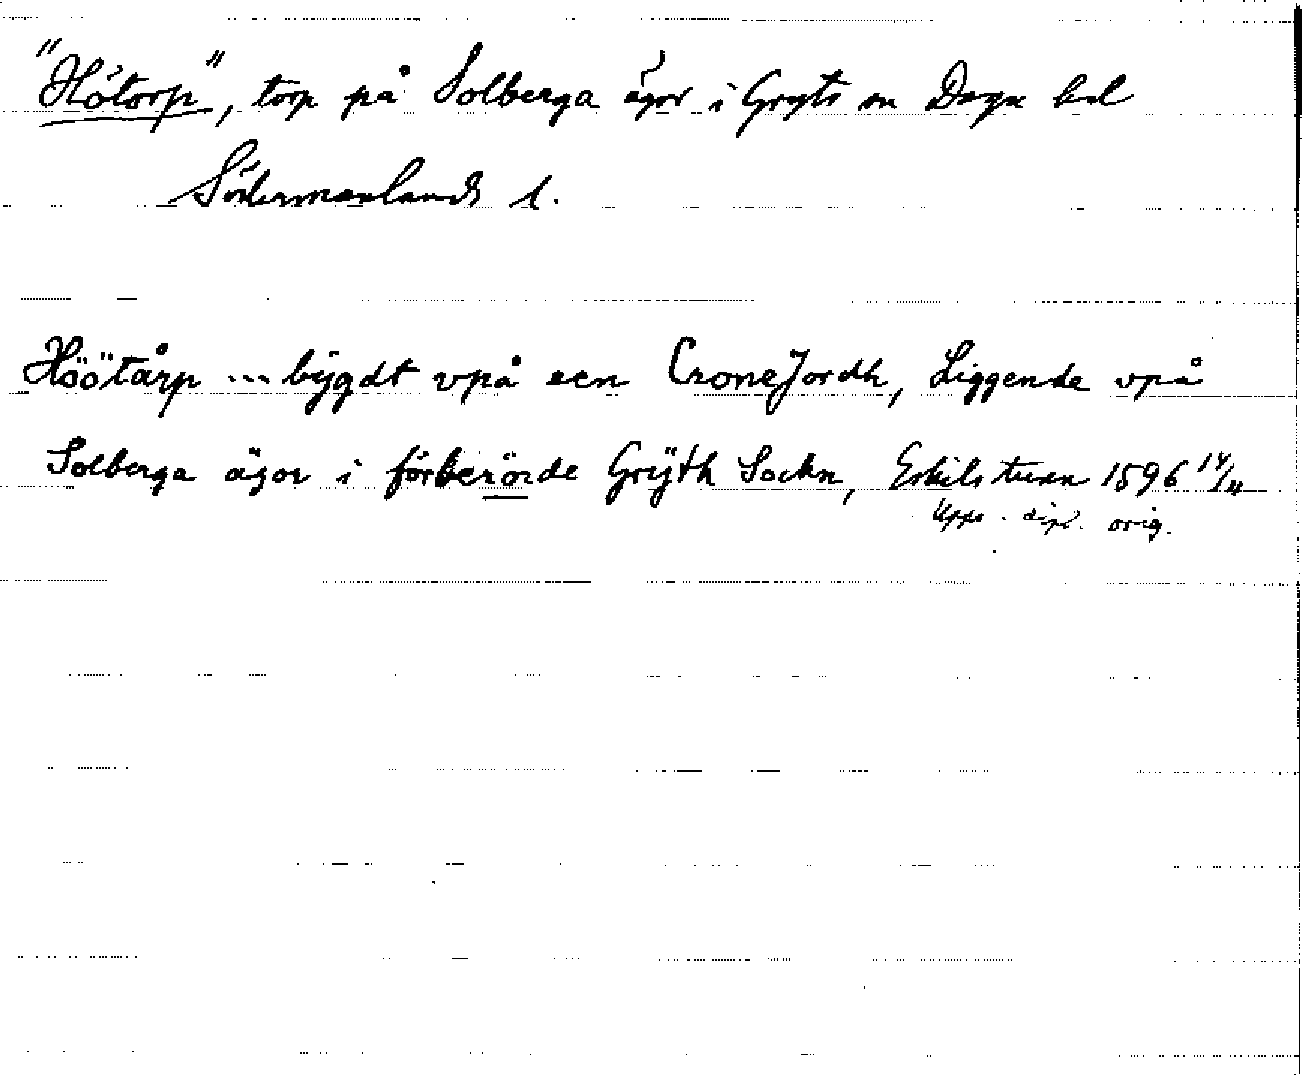 "Hötorp", torp på Solberga ägor i Gryts sn Daga hd
Södermanlands l.
Höötårp ... bÿgdt vpå een CroneJordh, Liggende vpå
Solberga ägor i förberörde Grÿth Sockn, Eskilstuna 1596 14/11
Upps. dipl. orig.